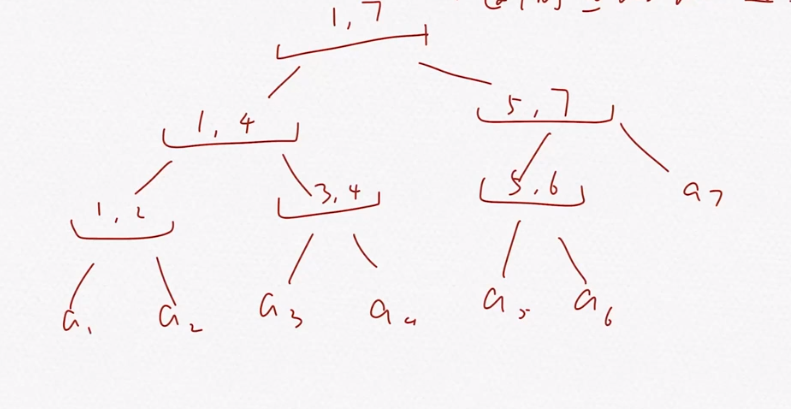 1,7
1,4 5,7
1,2 3,4 5,6 a7
a1 a2 a3 a4 a5 a6